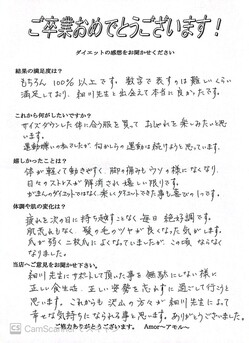 ご卒業おめでとうございます!
ダイエットの感想をお聞かせください
結果の満足度は?
もちろん100%以上です。数字で表すのは難しいくらい
満足しており、細川先生と出会えて本当に良かったです。
これから何がしたいですか?
サイズダウンした体に合う服を買っておしゃれを楽しみたいと思
います。
運動嫌いの私でしたが、何かしらの運動は続けようと思っています。
嬉しかったことは?
体が軽くて動きやすく、脚の痛みもウソの様になくなり、
日々のストレスが解消され嬉しい限りです。
がまんのダイエットではなく楽しくダイエットできた事も喜びの1つです。
体調や肌の変化は?
疲れを次の日に持ち越すこともなく毎日絶好調です。
肌荒れもなく、髪の毛のツヤが良くなった気がします。
爪が弱く二枚爪によくなっていましたが、この頃ならなく
なりました。
当店へご意見、ご感想をお聞かせ下さい。
細川先生にサポートして頂いた事を無駄にしない様に
正しい食生活、正しい姿勢を忘れずに過ごして行こうと
思います。これからも沢山の方々が細川先生によって
幸せな気持ちになられる事と思います。ありがとうございました。
ご協力ありがとうございます。 Amor~アモル~
CS CamScanner